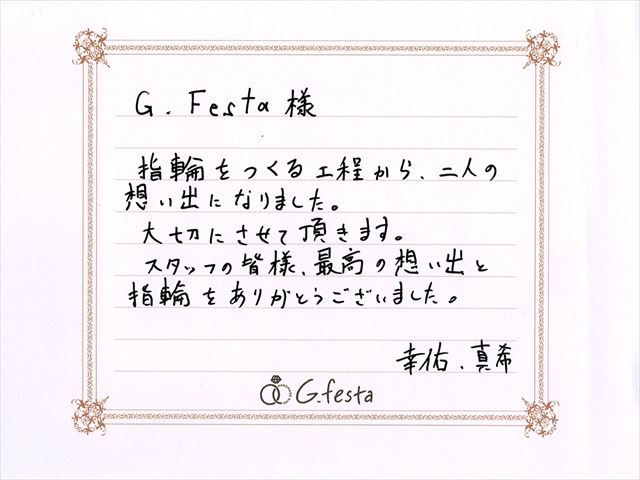 G. Festa 様
指輪をつくる工程から、二人の
想い出になりました。
大切にさせて頂きます。
スタッフの皆様、最高の想い出と
指輪をありがとうございました。
幸佑、真希
G.festa